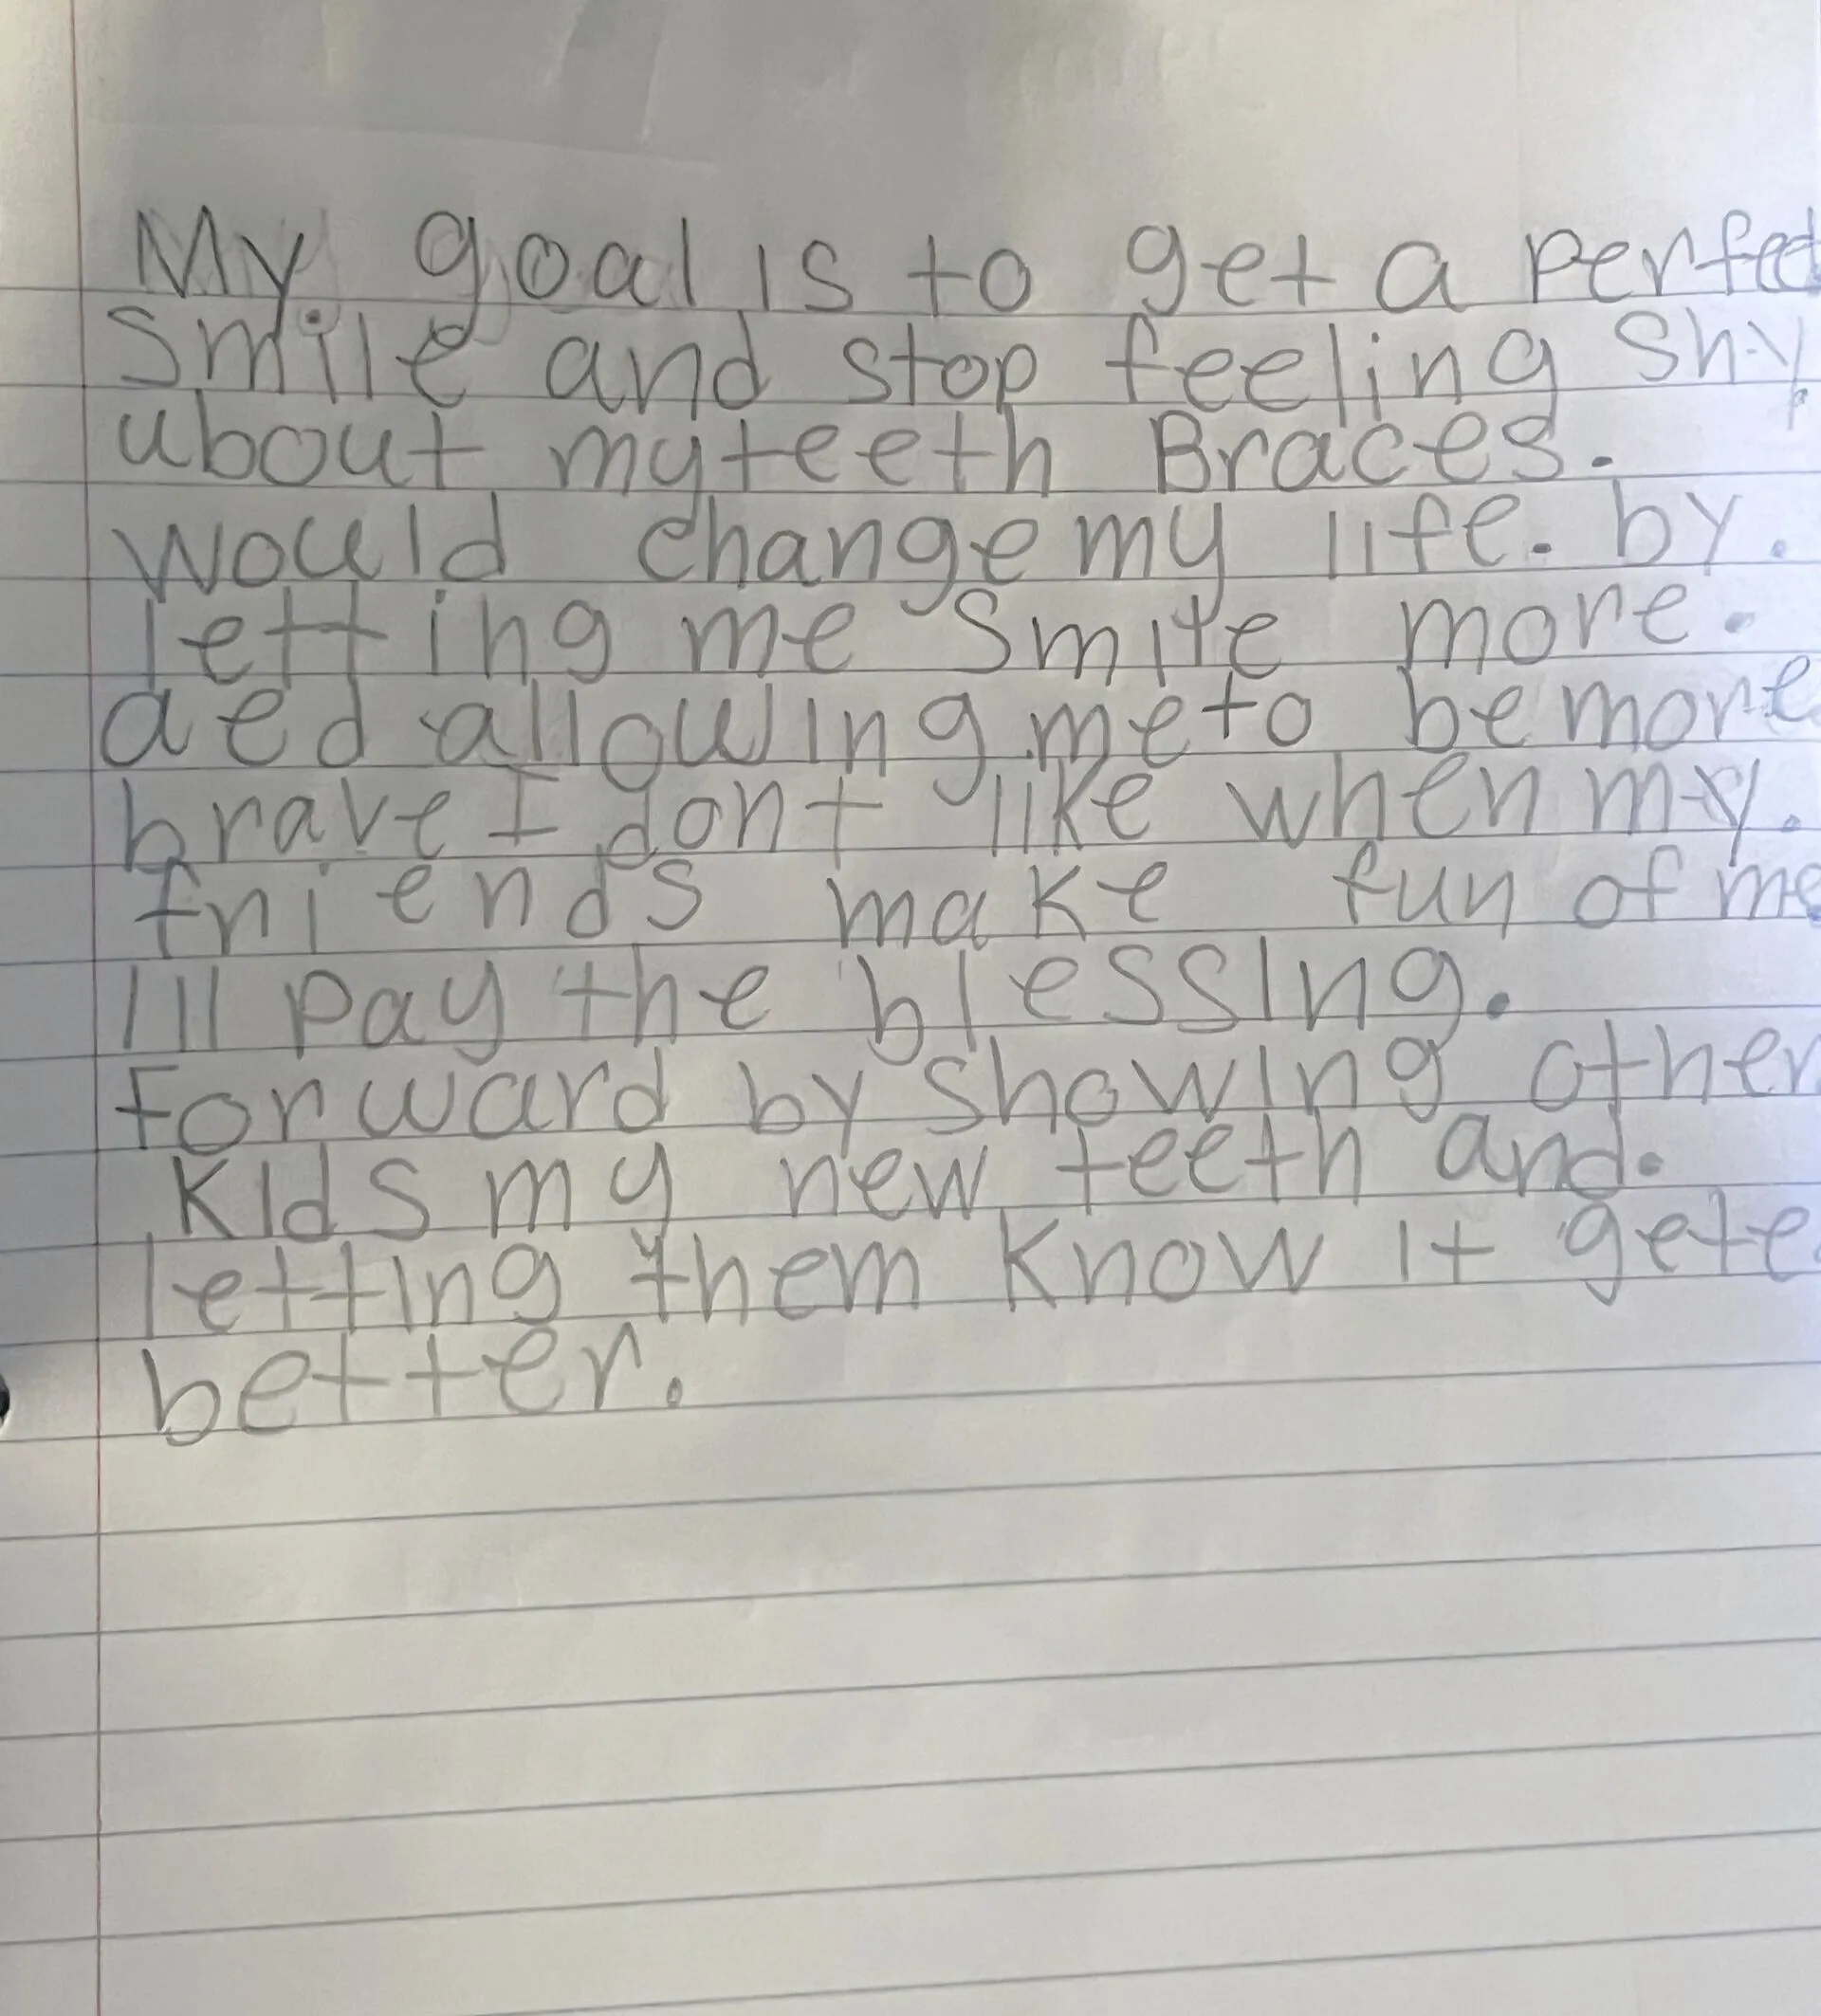 My goal is to get a perfect
smile and stop feeling shy
about my teeth Braces.
would change my life. by.
letting me smile more.
aed allowing me to be more
brave I dont like when my.
friends make fun of me
Ill pay the blessing.
forward by showing other
Kids my new teeth and.
letting them know it gete
better.